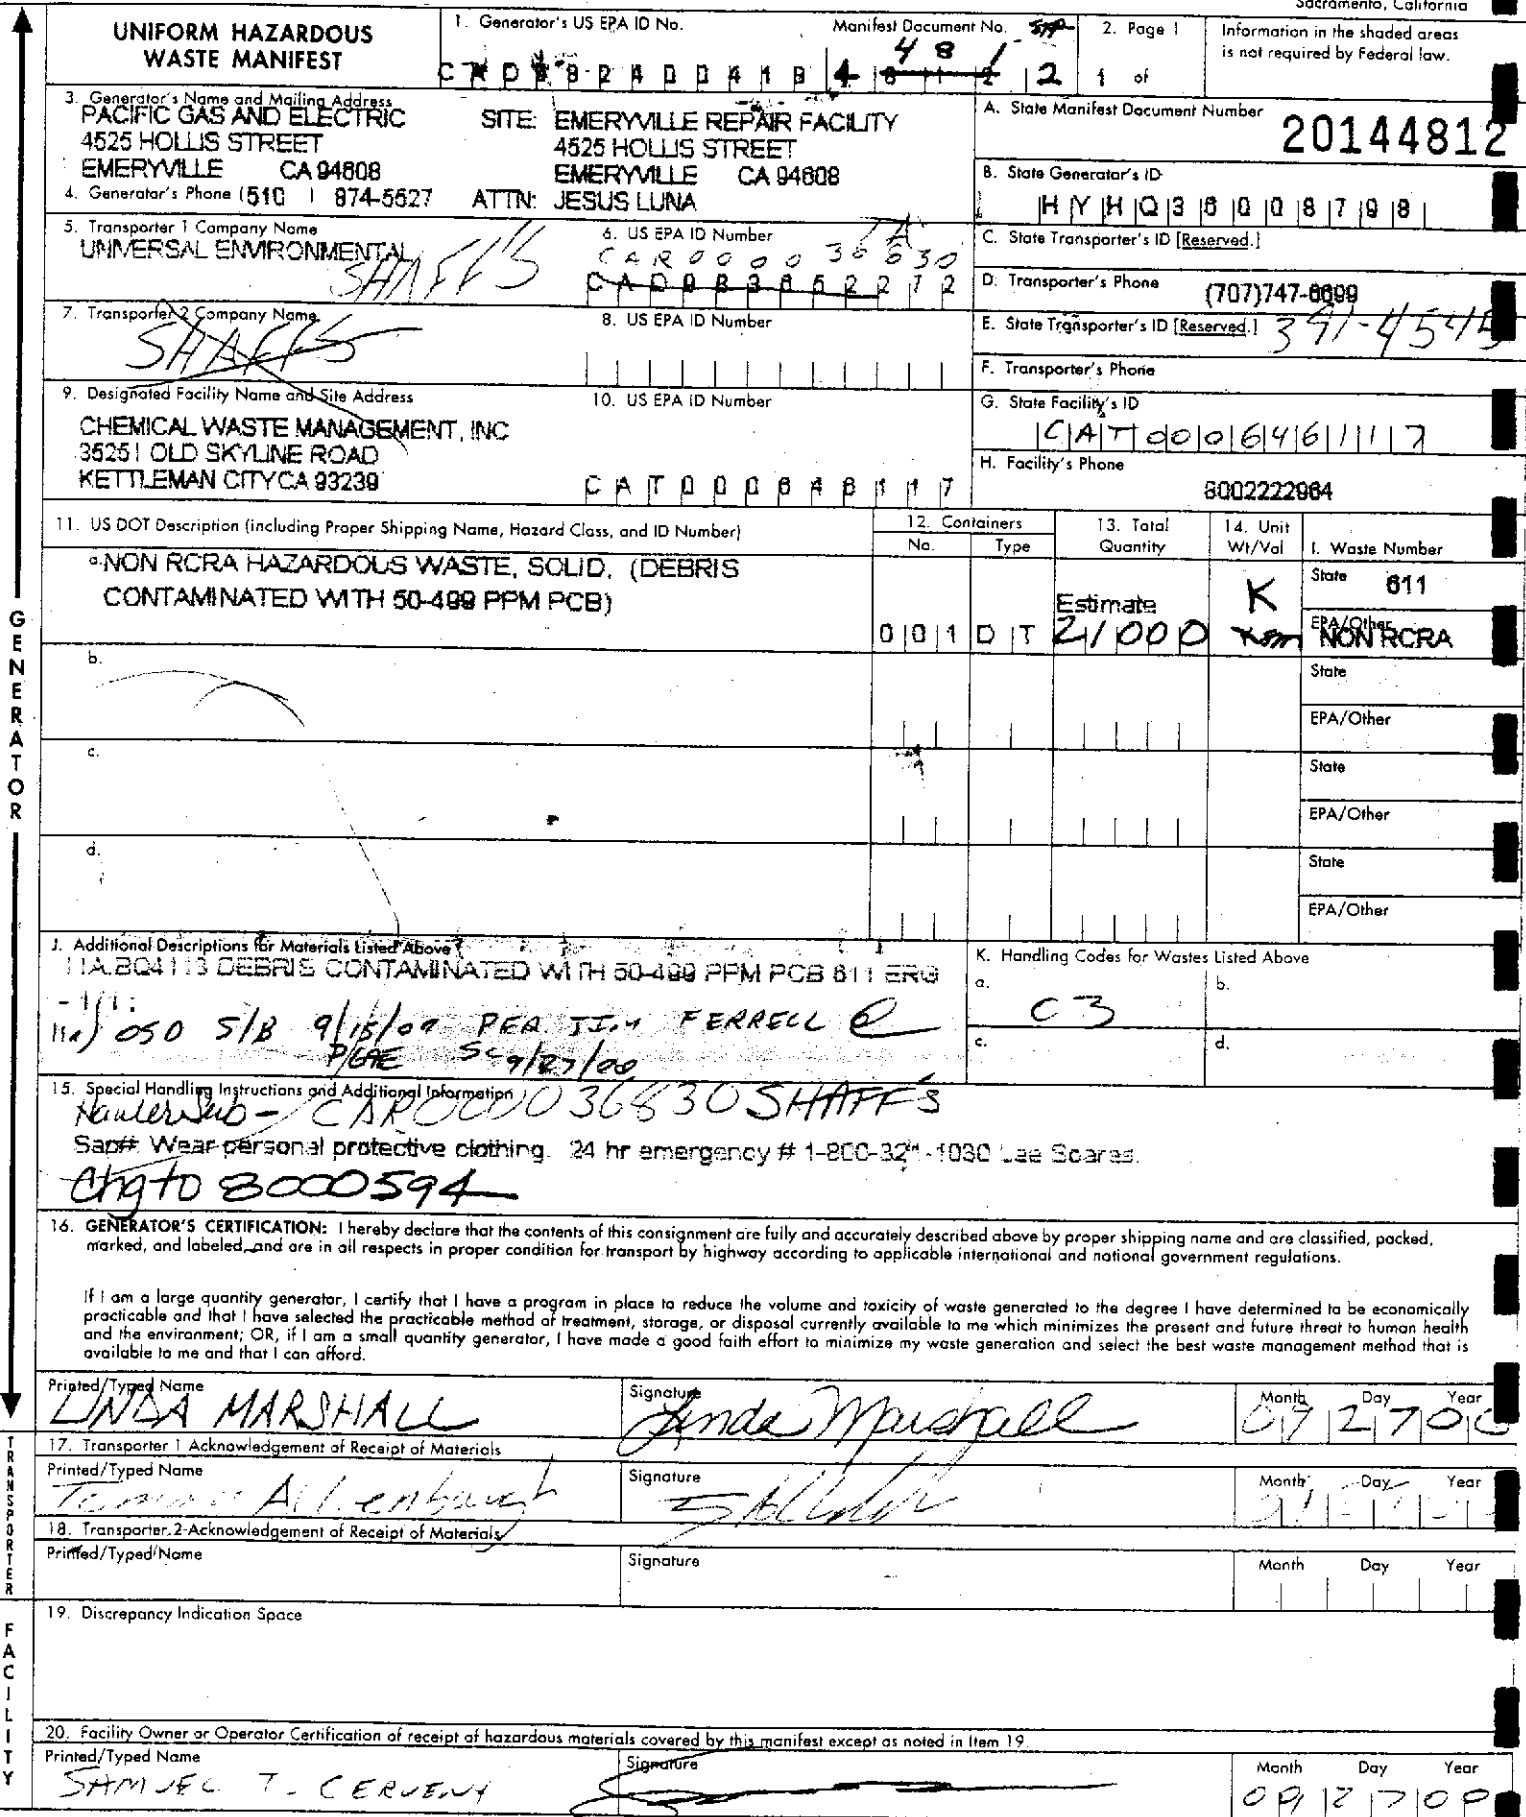 Sacramento, California
UNIFORM HAZARDOUS
WASTE MANIFEST
1. Generator's US EPA ID No.
Manifest Document No.
4 8 1
2
2. Page 1
1 of
Information in the shaded areas
is not required by Federal law.
3. Generator's Name and Mailing Address
PACIFIC GAS AND ELECTRIC
4525 HOLLIS STREET
EMERYVILLE CA 94608
SITE: EMERYVILLE REPAIR FACILITY
4525 HOLLIS STREET
EMERYVILLE CA 94608
4. Generator's Phone (510 ) 874-5527
ATTN: JESUS LUNA
A. State Manifest Document Number
20144812
B. State Generator's ID
HYHQ36008798
5. Transporter 1 Company Name
UNIVERSAL ENVIRONMENTAL
SHAFF'S
6. US EPA ID Number
C. State Transporter's ID [Reserved.]
D. Transporter's Phone
(707)747-6699
7. Transporter 2 Company Name
SHAFFS
8. US EPA ID Number
E. State Transporter's ID [Reserved.] 391-4545
F. Transporter's Phone
9. Designated Facility Name and Site Address
CHEMICAL WASTE MANAGEMENT, INC
35251 OLD SKYLINE ROAD
KETTLEMAN CITY CA 93239
10. US EPA ID Number
CAT000646117
G. State Facility's ID
CAT000646117
H. Facility's Phone
8002222964
11. US DOT Description (including Proper Shipping Name, Hazard Class, and ID Number)
12. Containers
No. Type
13. Total
Quantity
14. Unit
Wt/Vol
I. Waste Number
a. NON RCRA HAZARDOUS WASTE, SOLID, (DEBRIS
CONTAMINATED WITH 50-499 PPM PCB)
001 DT
Estimate
21000
K
State 611
EPA/Other
NON RCRA
b.
State
EPA/Other
c.
State
EPA/Other
d.
State
EPA/Other
J. Additional Descriptions for Materials Listed Above
11A.BQ4113 DEBRIS CONTAMINATED WITH 50-499 PPM PCB 611 ERG
- 171:
11a) 050 S/B 9/15/00 PER JIM FERRELL
PG&E SC 9/27/00
K. Handling Codes for Wastes Listed Above
a. C3
b.
c.
d.
15. Special Handling Instructions and Additional Information
CAR000036830 SHAFF'S
Sap# Wear personal protective clothing. 24 hr emergency # 1-800-321-1030 Lee Soares.
Chg to 8000594
16. GENERATOR'S CERTIFICATION: I hereby declare that the contents of this consignment are fully and accurately described above by proper shipping name and are classified, packed,
marked, and labeled, and are in all respects in proper condition for transport by highway according to applicable international and national government regulations.
If I am a large quantity generator, I certify that I have a program in place to reduce the volume and toxicity of waste generated to the degree I have determined to be economically
practicable and that I have selected the practicable method of treatment, storage, or disposal currently available to me which minimizes the present and future threat to human health
and the environment; OR, if I am a small quantity generator, I have made a good faith effort to minimize my waste generation and select the best waste management method that is
available to me and that I can afford.
GENERATOR
Printed/Typed Name
LINDA MARSHALL
Signature
Linda Marshall
Month Day Year
09 27 00
17. Transporter 1 Acknowledgement of Receipt of Materials
Printed/Typed Name
Signature
Month Day Year
18. Transporter 2 Acknowledgement of Receipt of Materials
Printed/Typed Name
Signature
Month Day Year
TRANSPORTER
19. Discrepancy Indication Space
20. Facility Owner or Operator Certification of receipt of hazardous materials covered by this manifest except as noted in Item 19.
Printed/Typed Name
SAMUEL T. CERVENY
Signature
Month Day Year
09 27 00
FACILITY